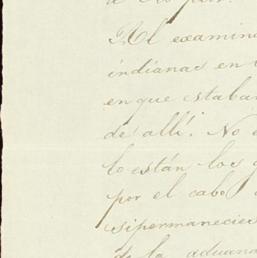 Al examina
indianas en
en que estaban
de allí. No
lo están los
por el cabo
si permanecier
de la aduana